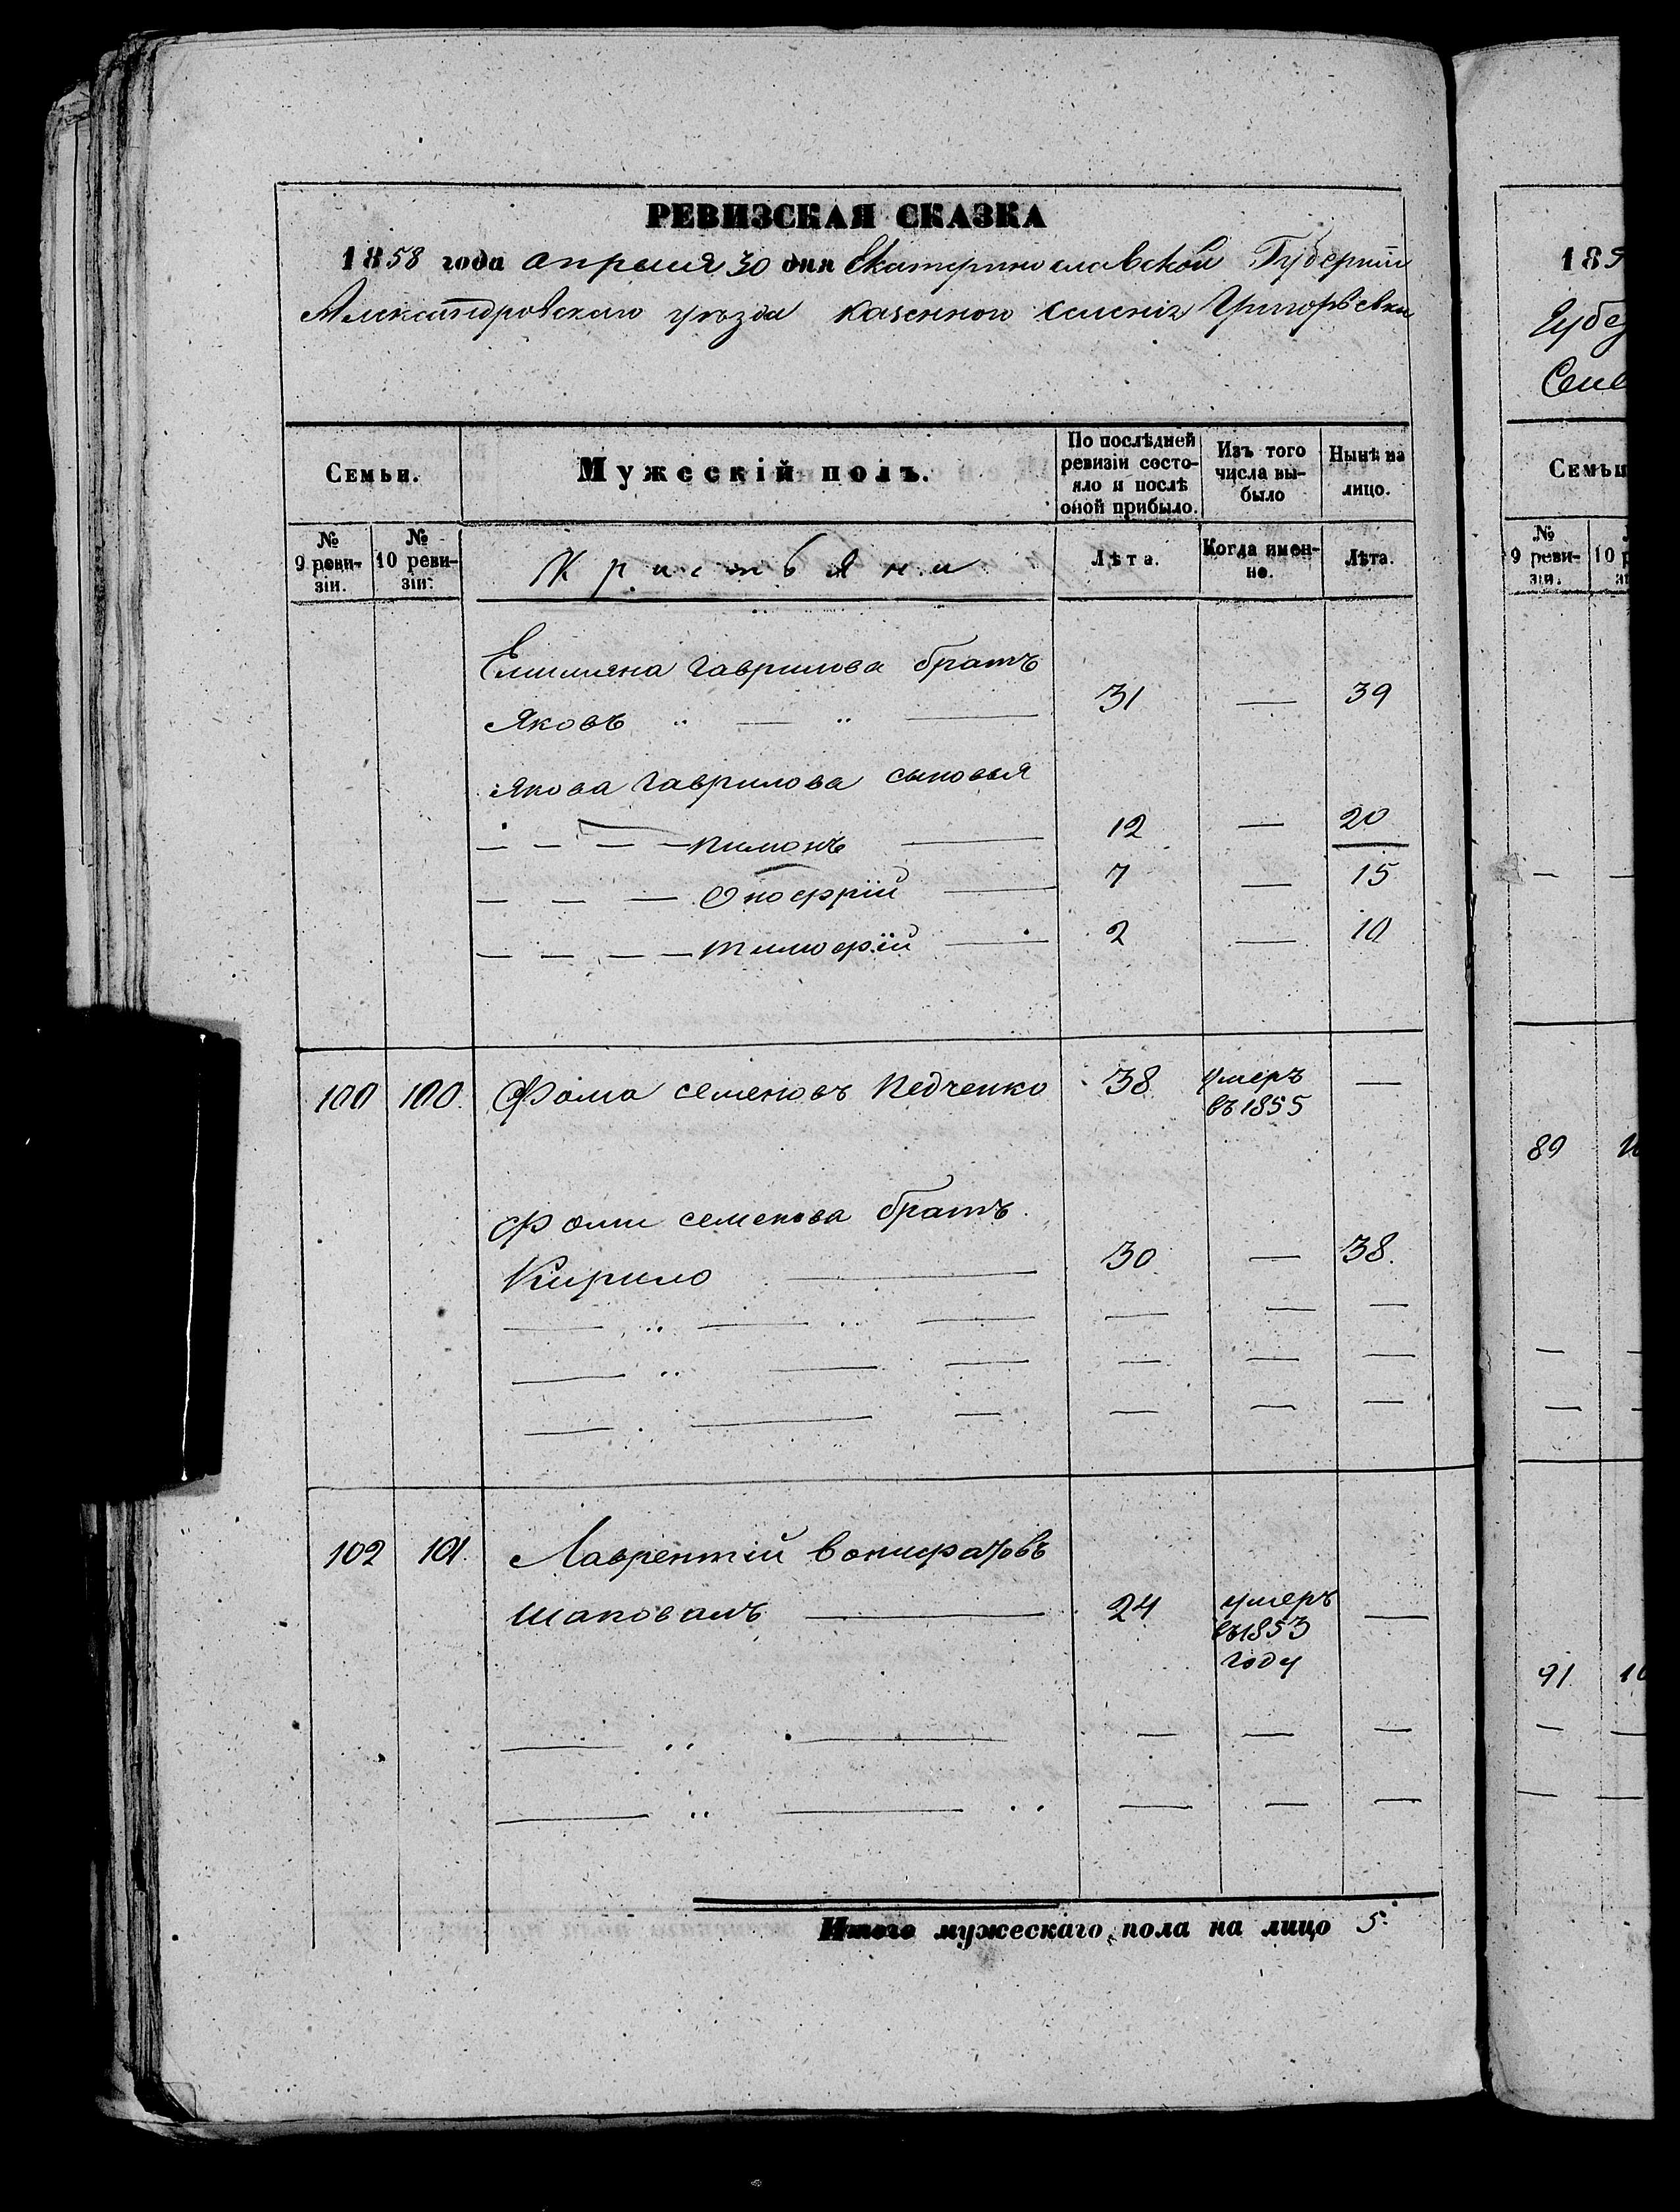 РЕВИЗСКАЯ СКАЗКА
1858 года апреля 30 дня Екатеринославской Губернии
Александровского уезда казенного селения Григорьевки
Семьи.
Мужескій полъ.
По послѣдней ревизіи состояло и послѣ оной прибыло.
Изъ того числа выбыло
Нынѣ на лицо.
№ 9 ревизіи.
№ 10 ревизіи.
Кристьяни
Лѣта.
Когда именно.
Лѣта.
Емилияна Гаврилова братъ
Яковъ 31 — 39
Якова Гаврилова сыновья
Пимонъ 12 — 20
Оноффрій 7 — 15
Тимофій 2 — 10
100 100. Фома Семеновъ Педченко 38 умеръ въ 1855 —
Фоми Семенова братъ
Кирило 30 — 38.
102 101. Лаврентій Вонифатовъ
Шаповалъ 24 умеръ въ 1853 году —
Итого мужескаго пола на лицо 5.
185
Губер
Селе
Семьи
№ 9 ревизіи.
10 р
89
91